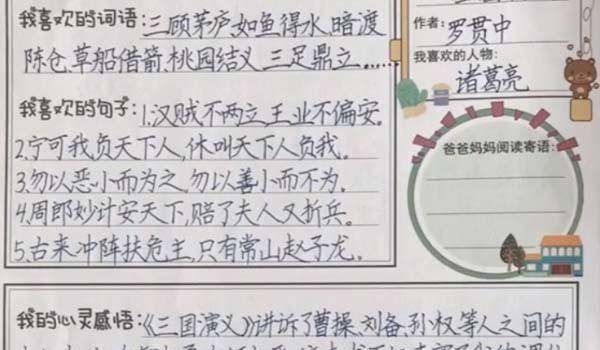 我喜欢的词语:三顾茅庐、如鱼得水、暗渡
陈仓、草船借箭、桃园结义、三足鼎立……
我喜欢的句子:1.汉贼不两立,王业不偏安。
2.宁可我负天下人,休叫天下人负我。
3.勿以恶小而为之,勿以善小而不为。
4.周郎妙计安天下,赔了夫人又折兵。
5.古来冲阵扶危主,只有常山赵子龙。
作者:罗贯中
我喜欢的人物:
诸葛亮
爸爸妈妈阅读寄语:
我的心灵感悟:《三国演义》讲诉了曹操、刘备、孙权等人之间的